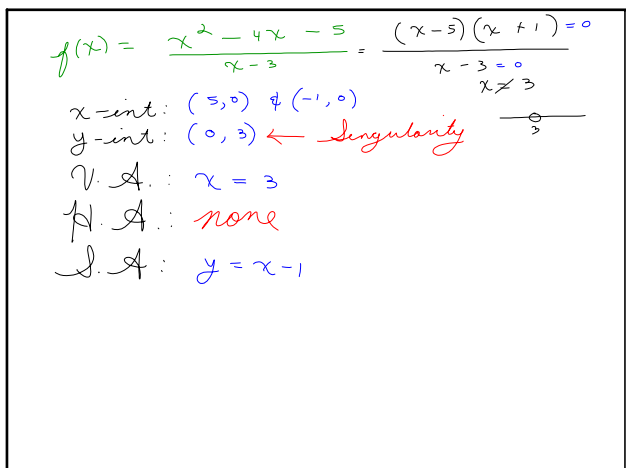 f(x) = x² - 4x - 5 / x - 3 = (x-5)(x + 1) = 0 / x - 3 = 0
x ≠ 3
x-int: (5,0) & (-1,0)
3
y-int: (0, 3) ← Singularity
V. A. : x = 3
H. A. : none
S. A : y = x-1